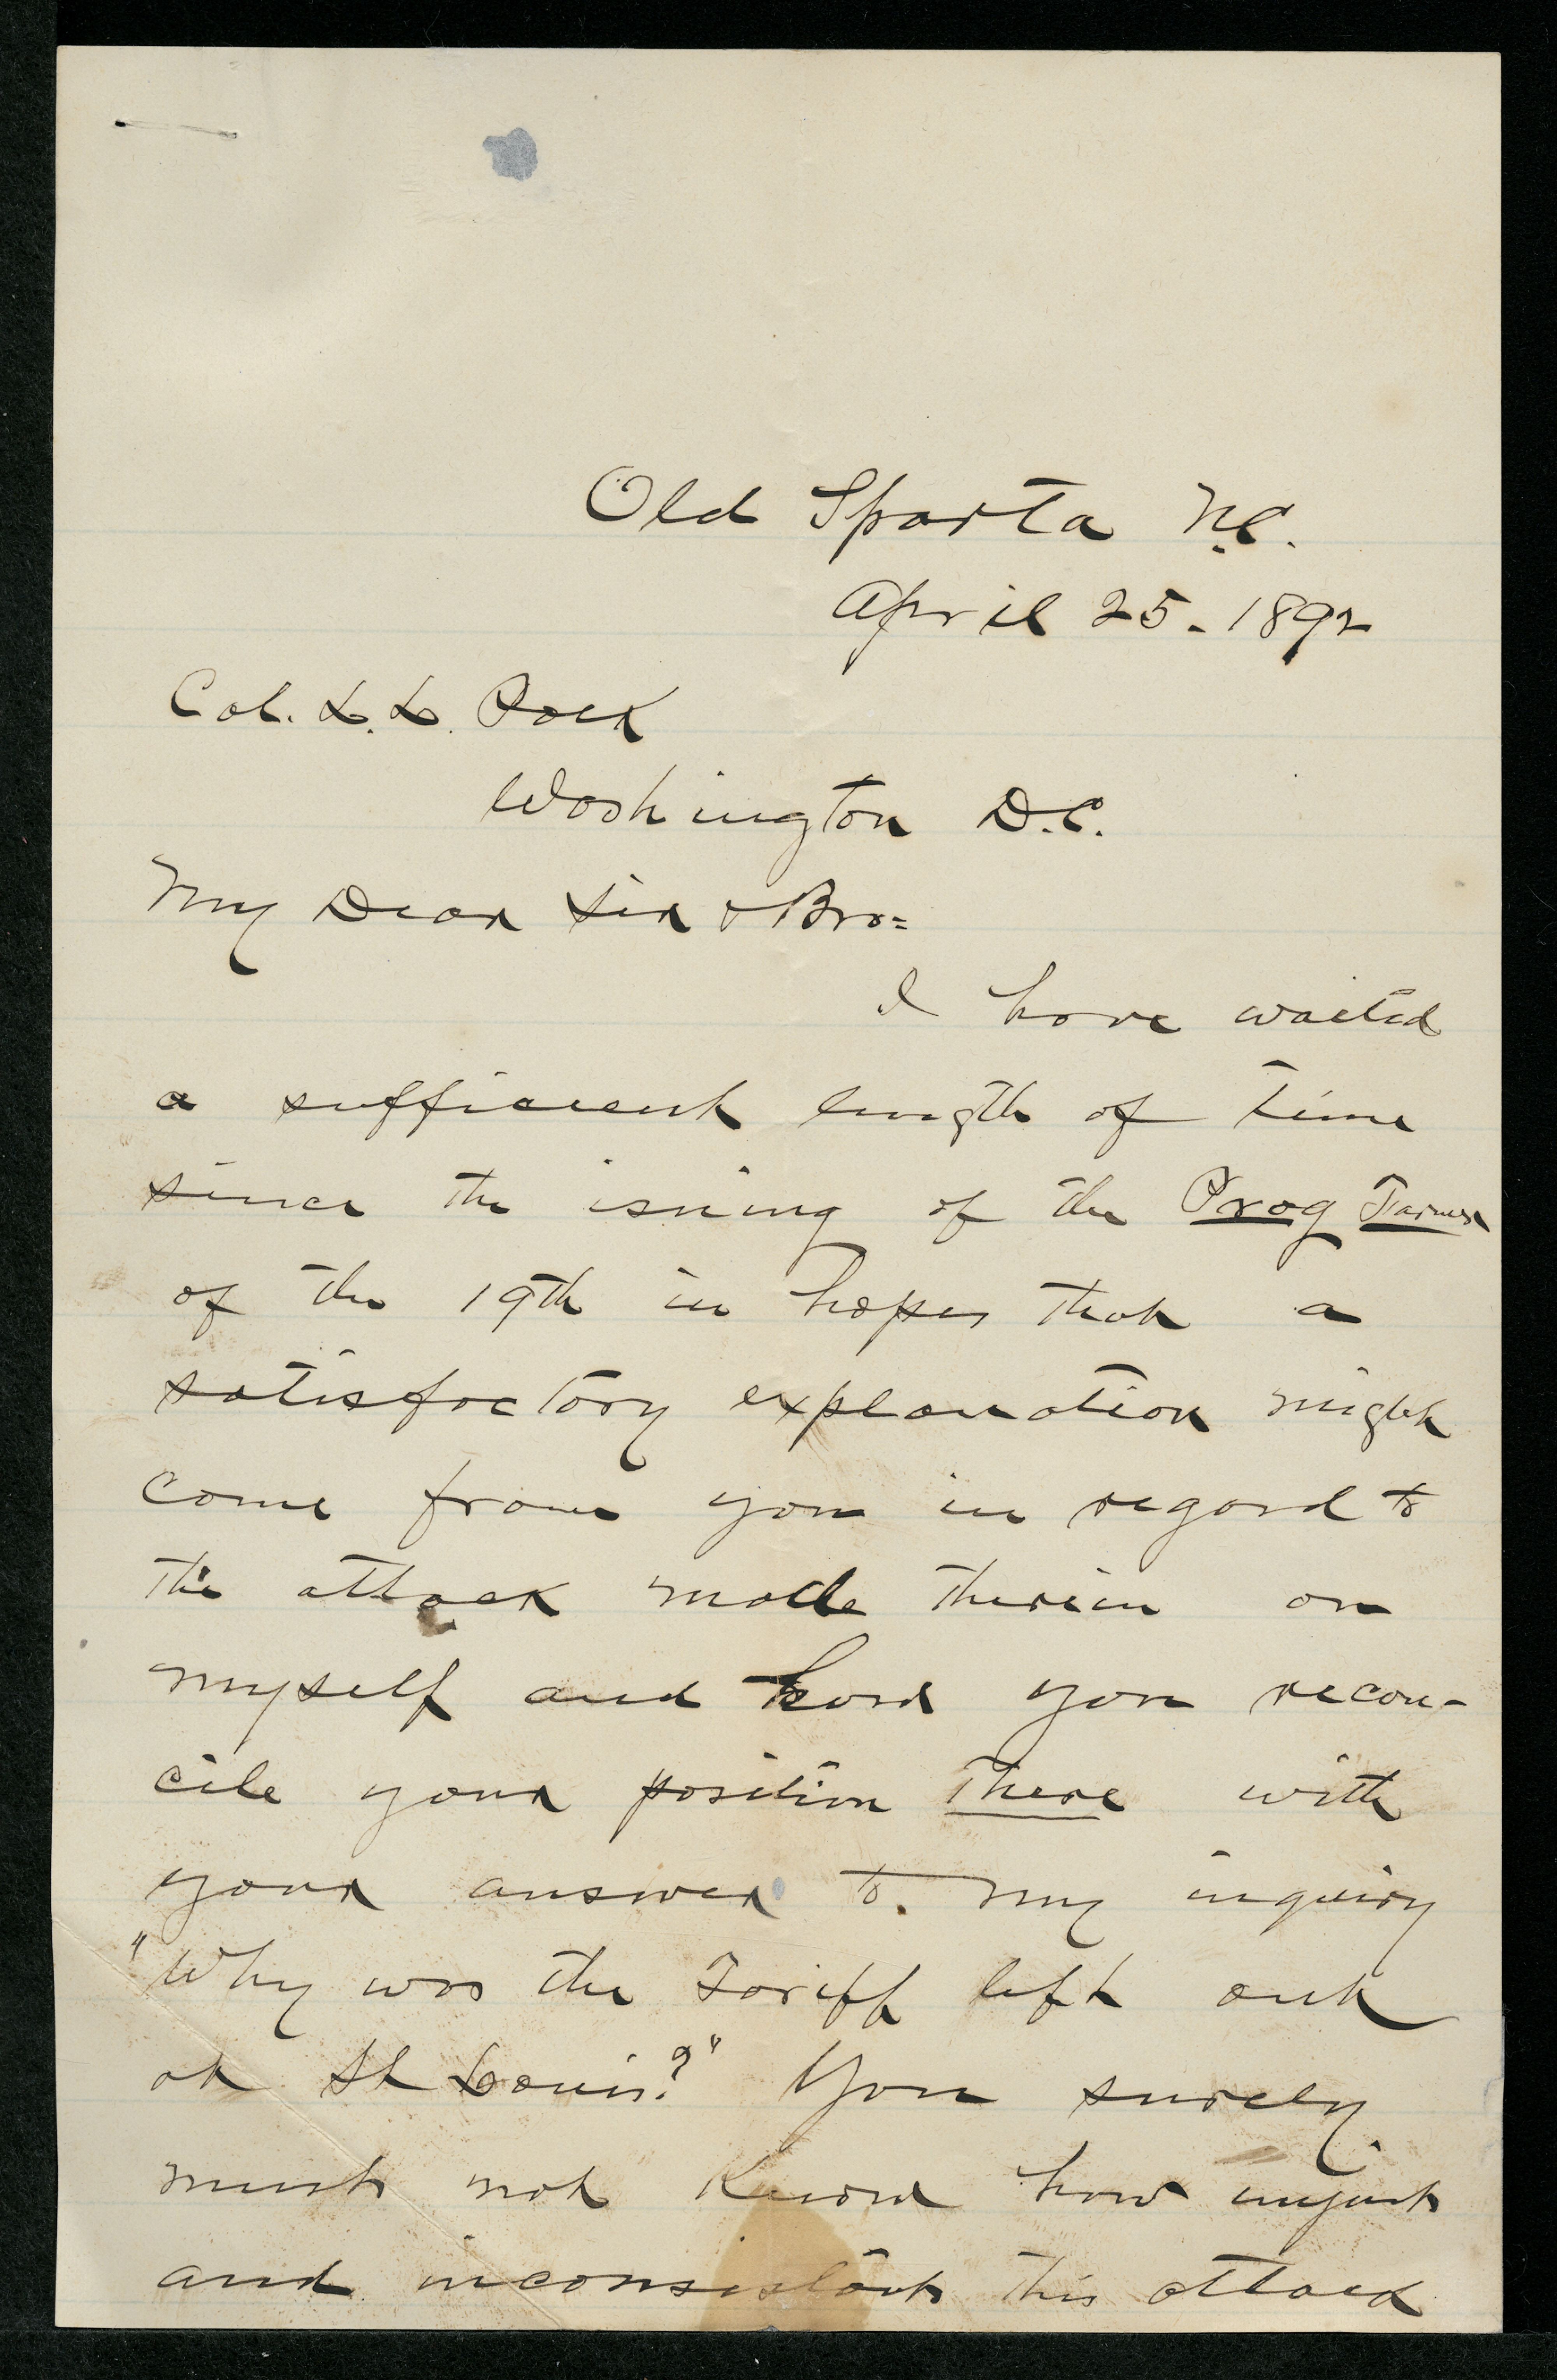 Old Sparta N.C.
April 25. 1892
Col. L. L. Polk
Washington D.C.
My Dear Sir & Bro=
I have waited
a sufficient length of time
since the issuing of the Prog Farmer
of the 19th in hopes that a
satisfactory explanation might
come from you in regard to
the attack made therein on
myself and how you recon-
cile your position there with
your answer to my inquiry
"Why was the Tariff left out
at St Louis?" You surely
must not know how unjust
and inconsistant this attack